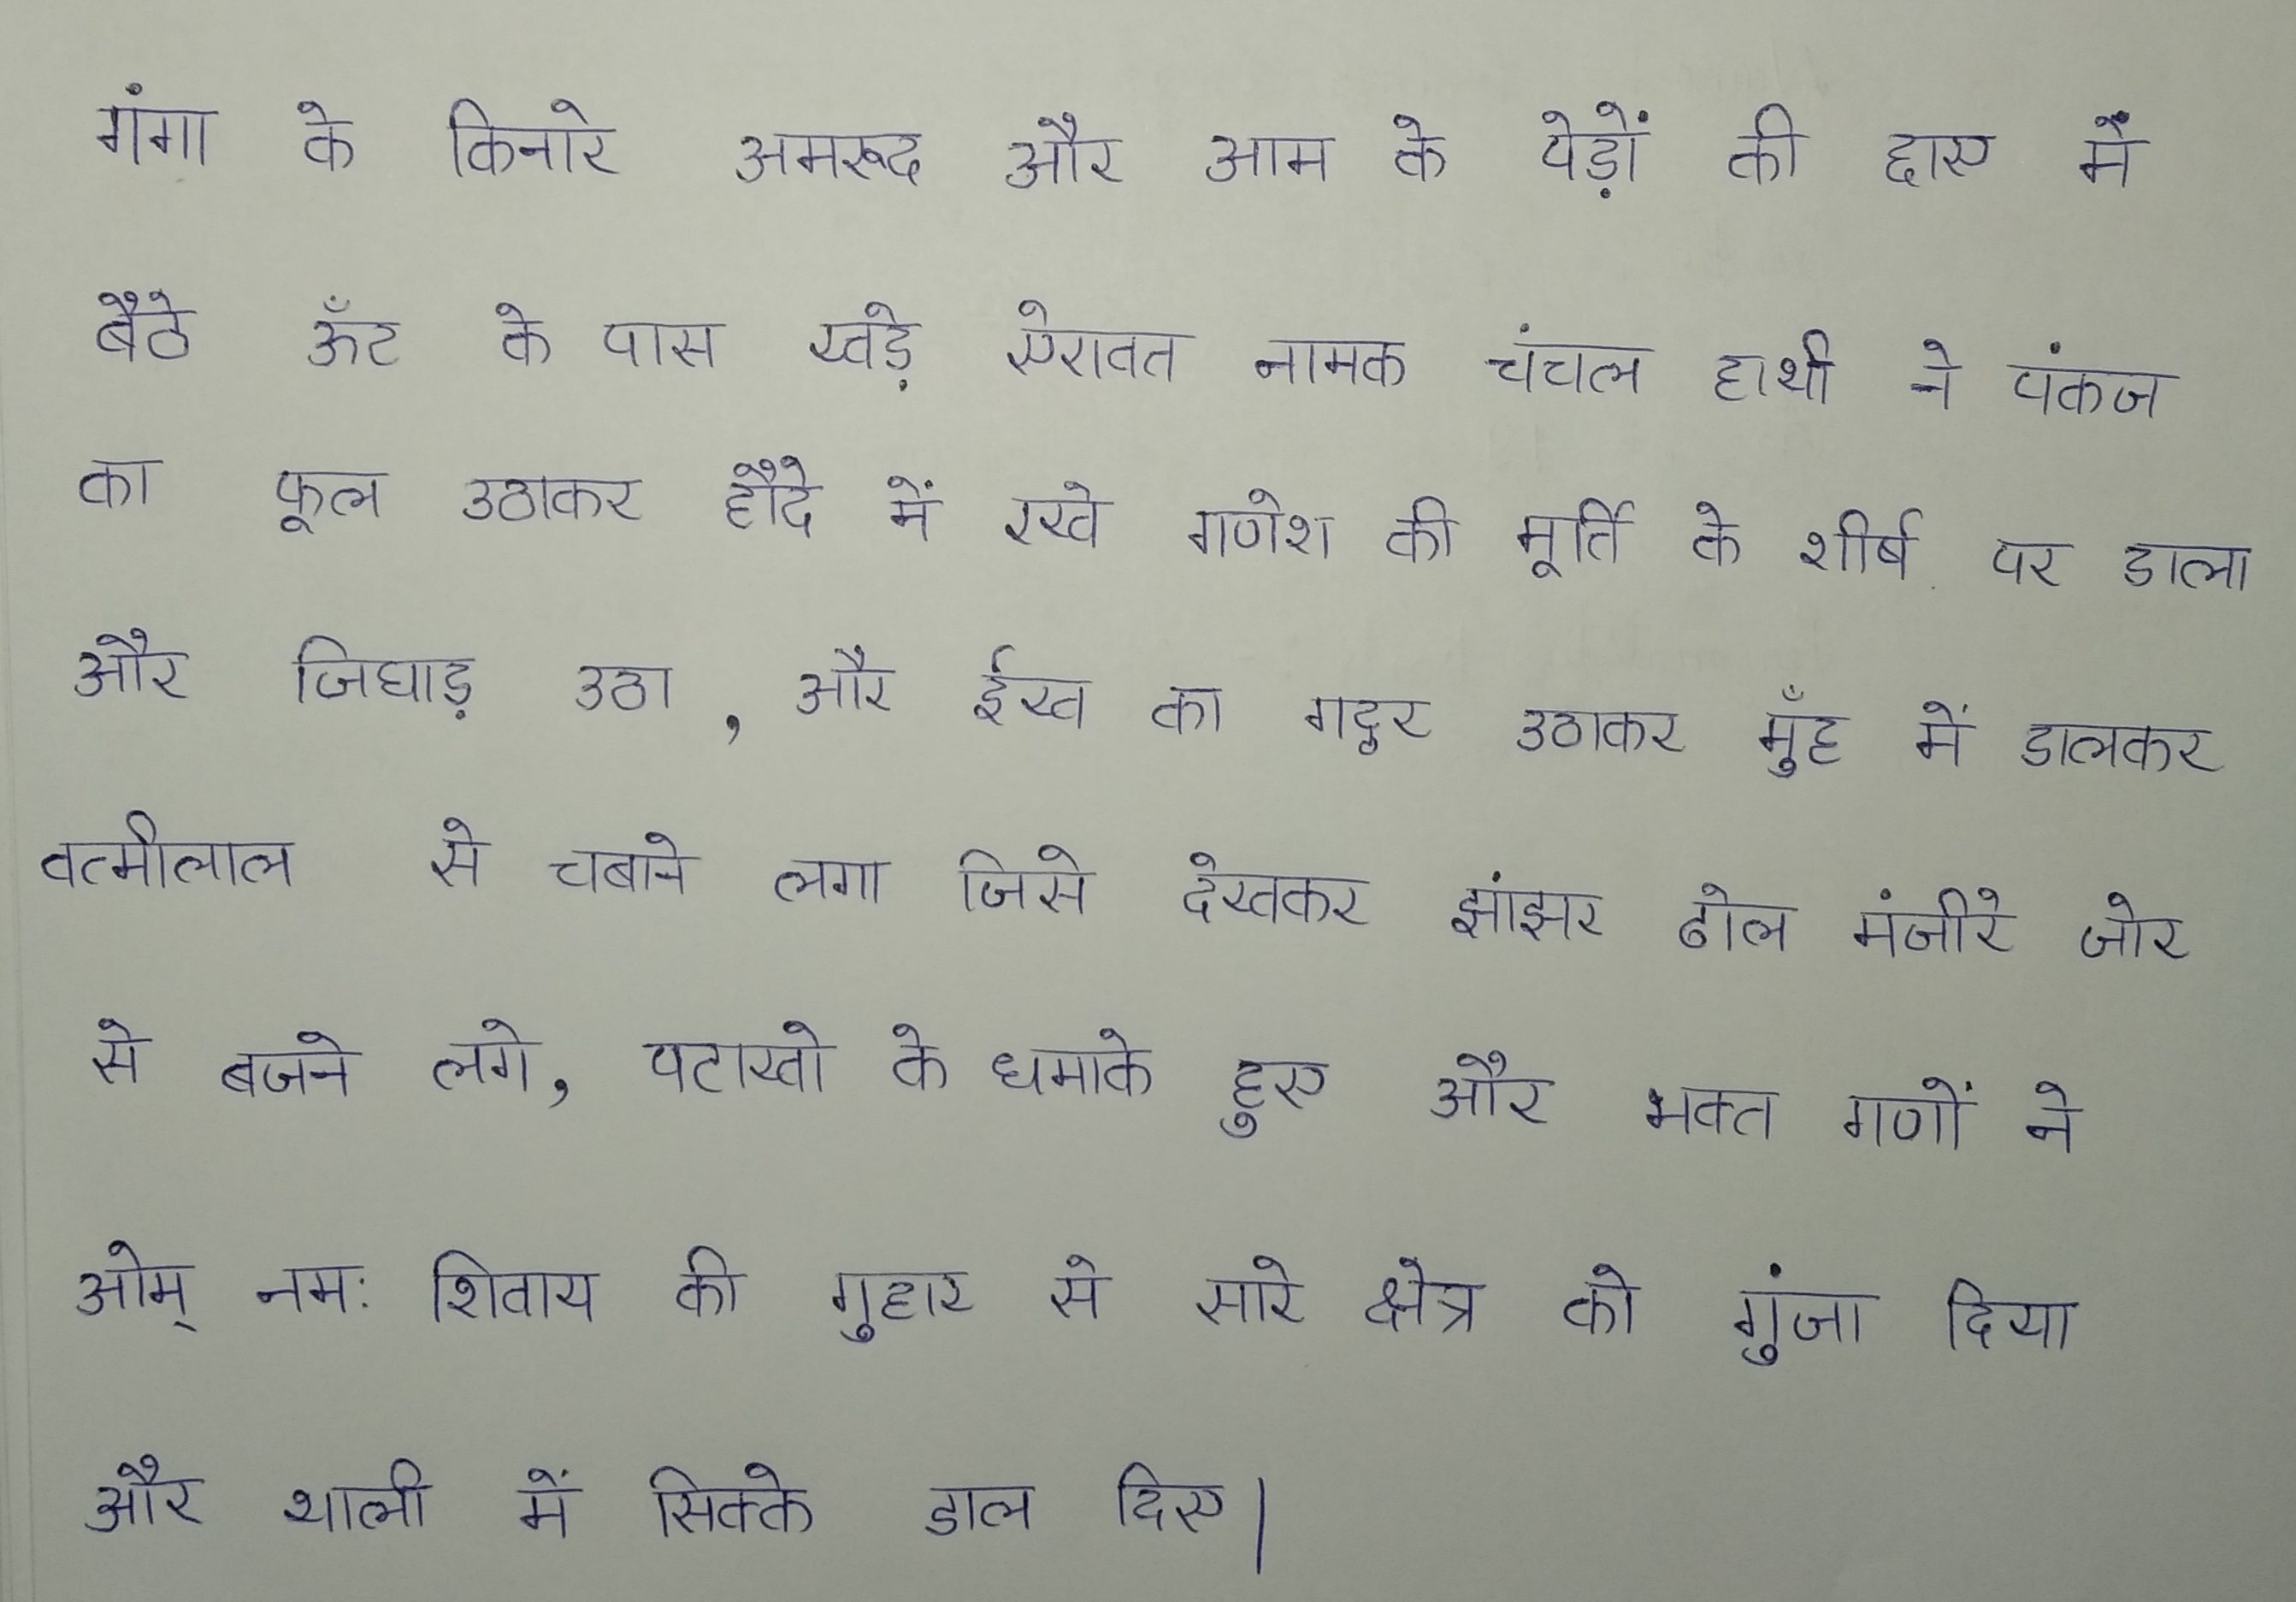 गंगा के किनारे अमरूद और आम के पेड़ों की छाए में
बैठे ऊँट के पास खड़े ऐरावत नामक चंचल हाथी ने पंकज
का फूल उठाकर हौदे में रखे गणेश की मूर्ति के शीर्ष पर डाला
और जिघाड़ उठा , और ईख का गट्ठर उठाकर मुँह में डालकर
वत्मीलाल से चबाने लगा जिसे देखकर झांझर ढोल मंजीरे जोर
से बजने लगे, पटाखो के धमाके हुए और भक्त गणों ने
ओम् नमः शिवाय की गुहार से सारे क्षेत्र को गुंजा दिया
और थाली में सिक्के डाल दिए|